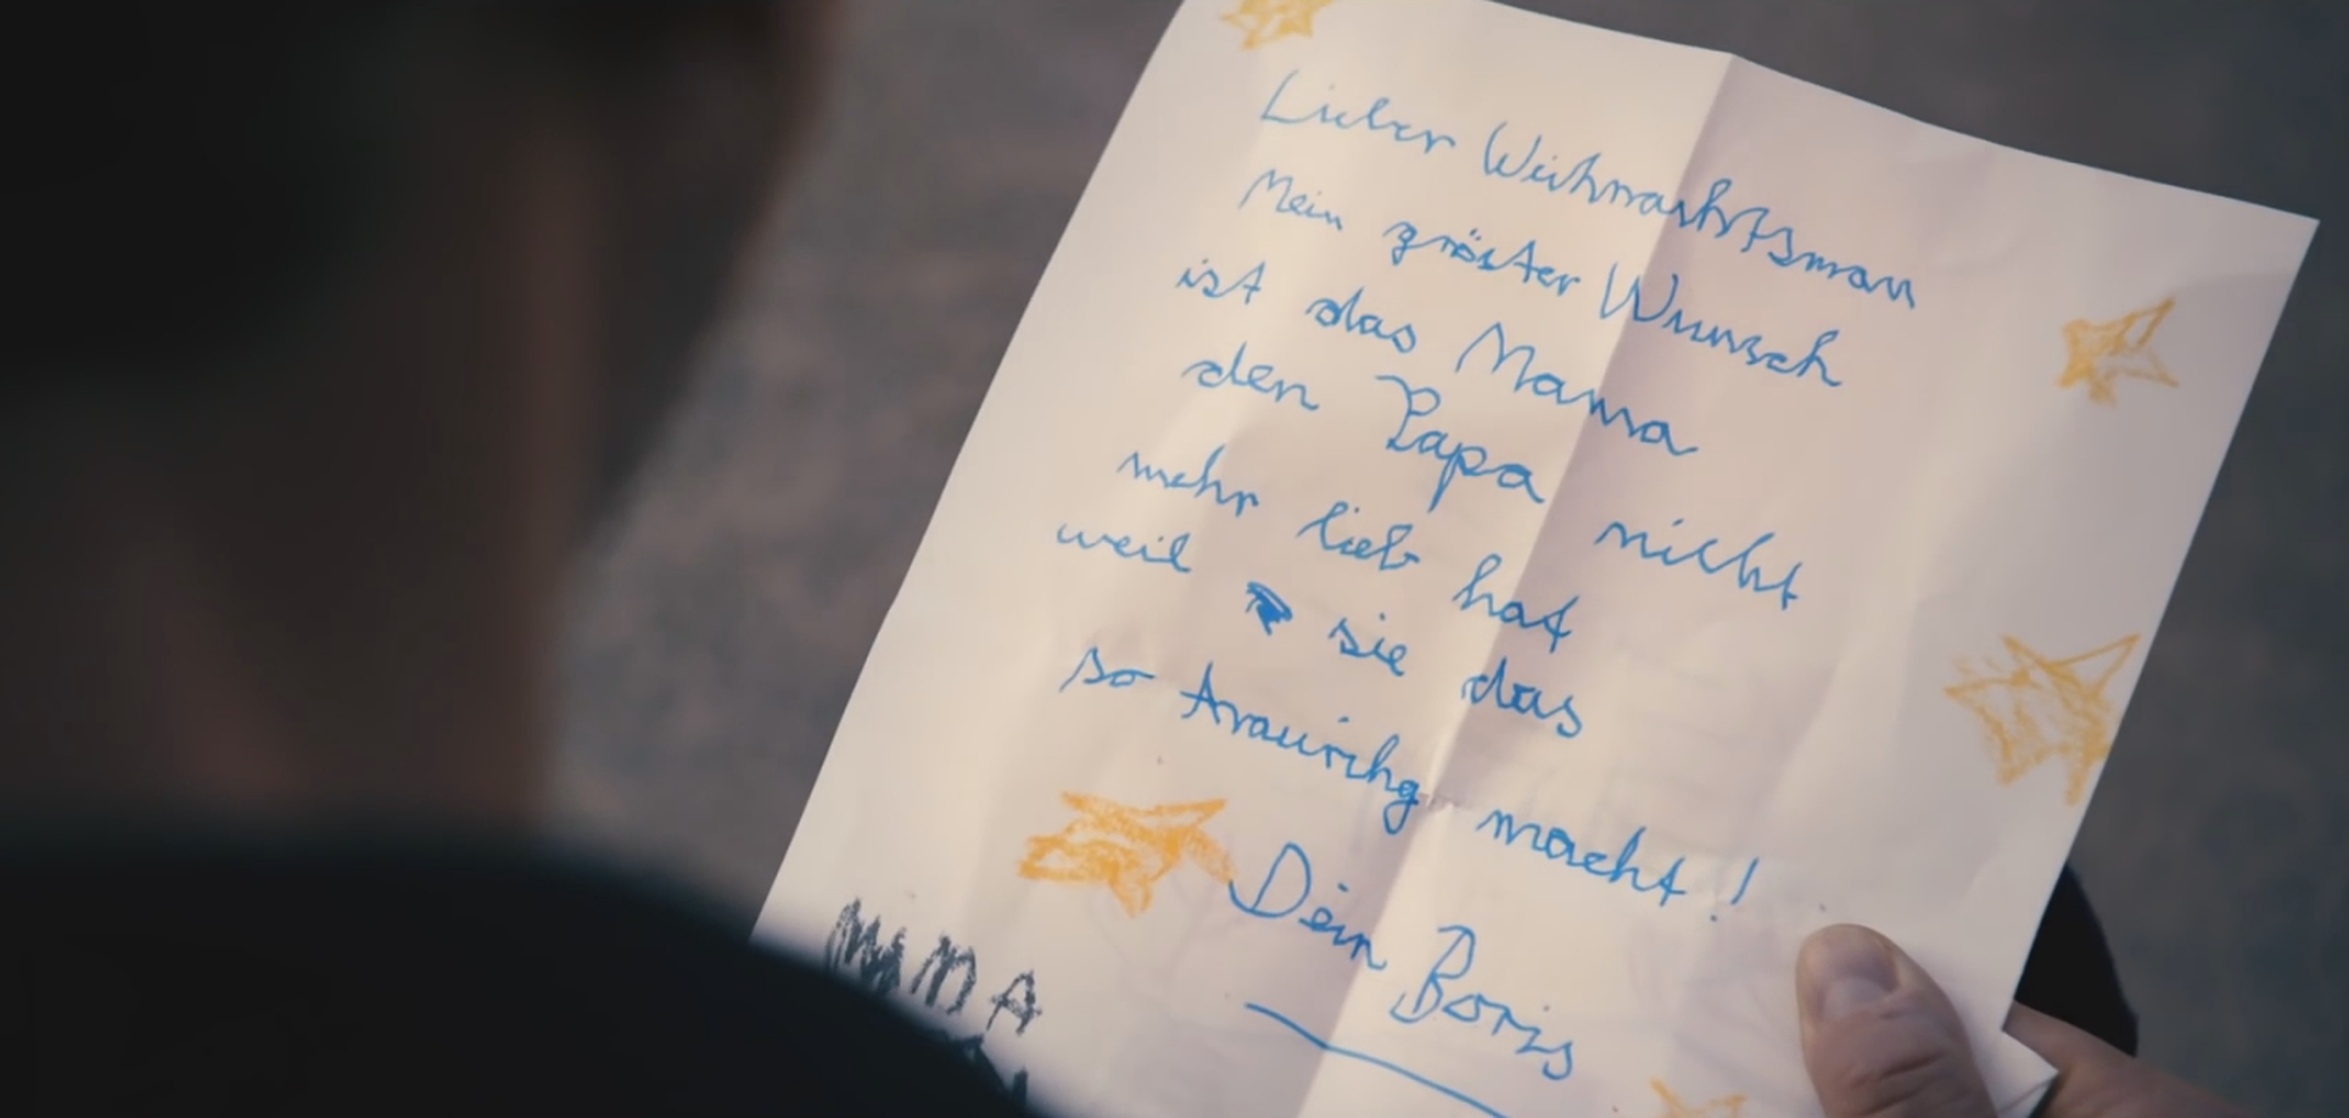 Lieber Weihnachtsman
Mein gröster Wunsch
ist das Mama
den Papa nicht
mehr lieb hat
weil sie das
so traurihg macht!
Dein Boris